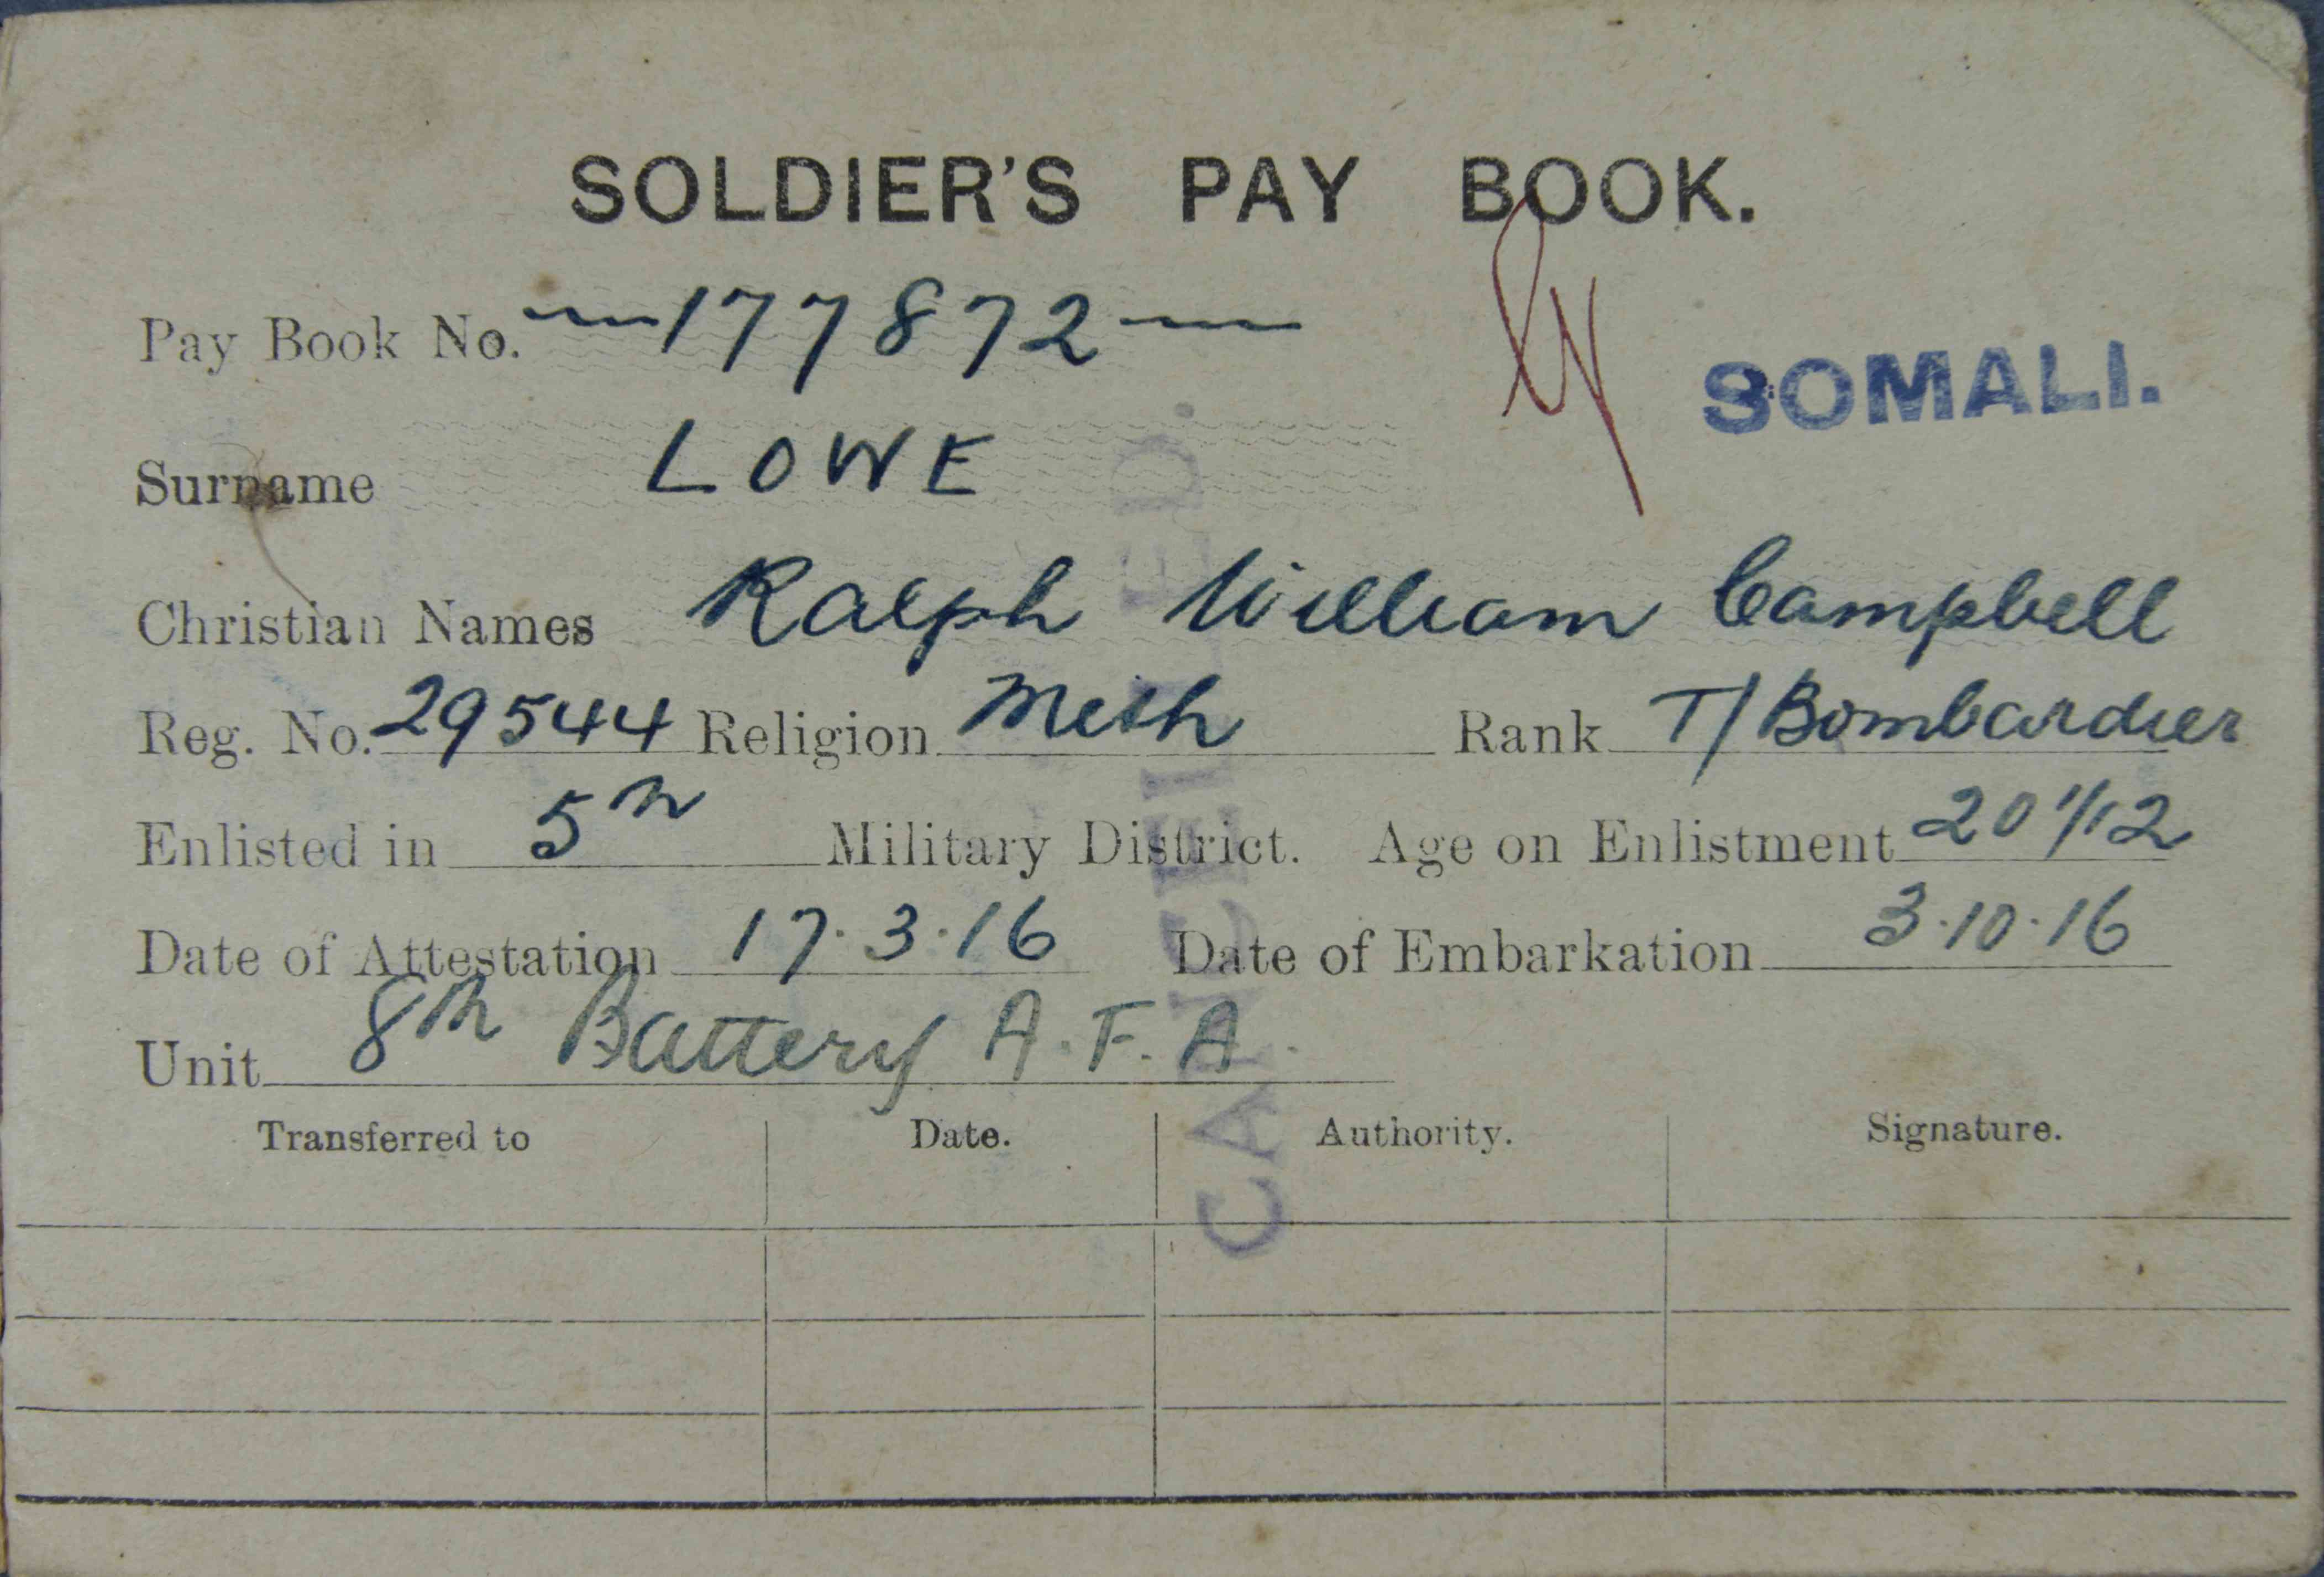 SOLDIER'S PAY BOOK.
Pay Book No. 177872
SOMALI.
Surname LOWE
Christian Names Ralph William Campbell
Reg. No. 29544 Religion Meth Rank T/Bombardier
Enlisted in 5th Military District. Age on Enlistment 20 1/12
Date of Attestation 17.3.16 Date of Embarkation 3.10.16
Unit 8th Battery A.F.A.
Transferred to Date. Authority. Signature.
CANCELLED.